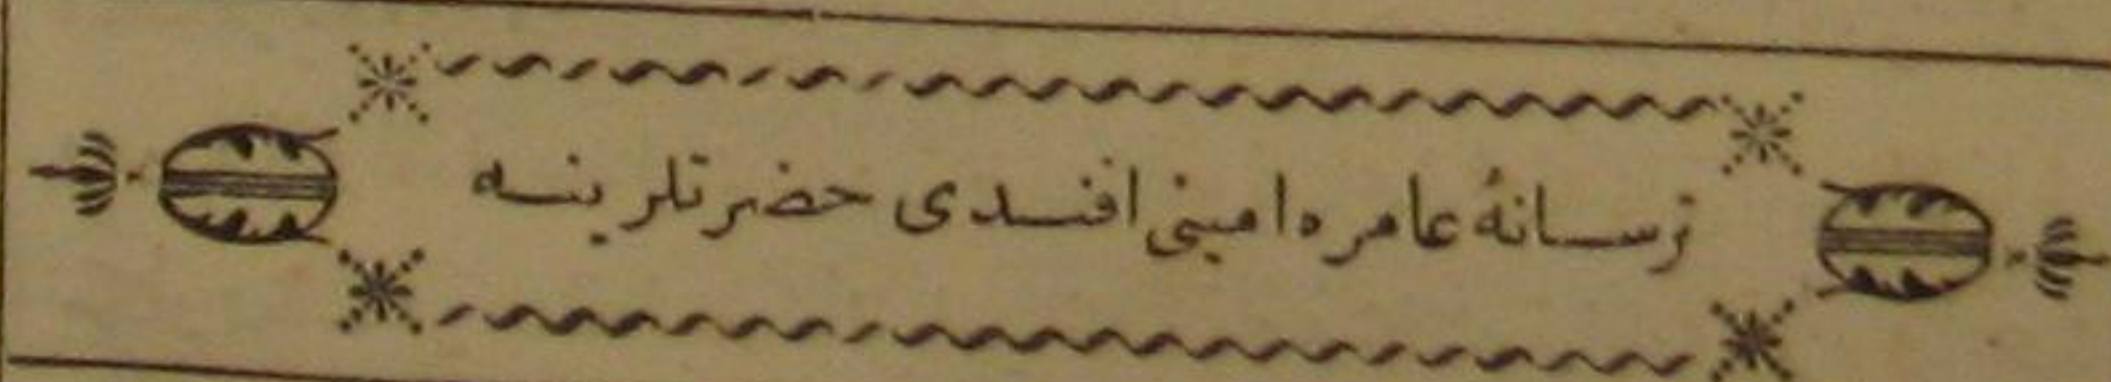 ترسانهٔ عامره امینی افندی حضرتلرینه